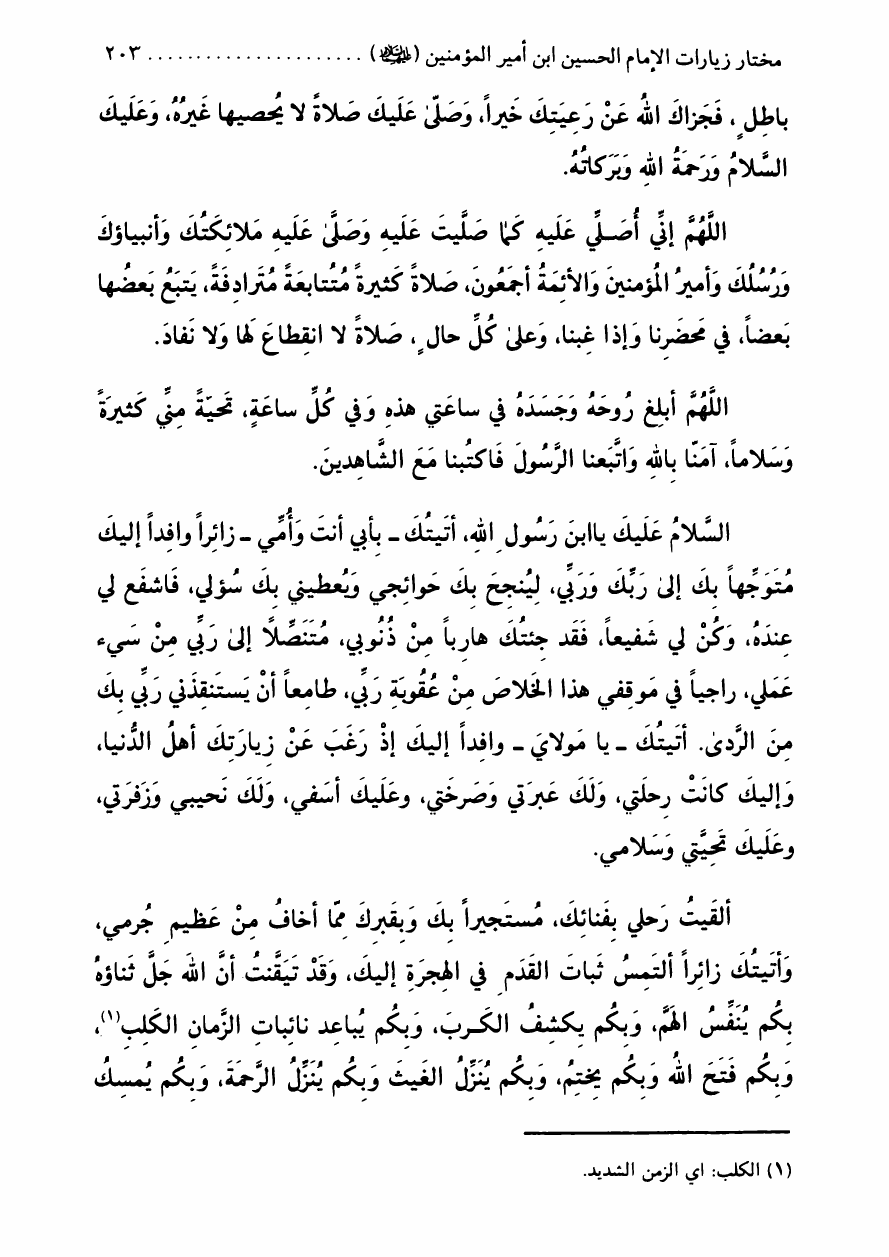 مختار زيارات الإمام الحسين ابن أمير المؤمنين (عليهما السلام) ..................... ٢٠٣
باطِلٍ، فَجَزاكَ اللهُ عَنْ رَعِيَتِكَ خَيراً، وَصَلّىٰ عَلَيكَ صَلاةً لا يُحصيها غَيرُهُ، وَعَلَيكَ
السَّلامُ وَرَحمَةُ اللهِ وَبَرَكاتُهُ.
اللَّهُمَّ إنِّي أُصَلِّي عَلَيهِ كَما صَلَّيتَ عَلَيهِ وَصَلَّىٰ عَلَيهِ مَلائِكَتُكَ وَأنبياؤكَ
وَرُسُلُكَ وَأميرُ المُؤمنينَ وَالأئمَةُ أجمَعُونَ، صَلاةً كَثيرةً مُتَتابَعَةً مُتَرادِفَةً، يَتبَعُ بَعضُها
بَعضاً، في مَحضَرِنا وَإذا غِبنا، وَعلىٰ كُلِّ حالٍ، صَلاةً لا انقِطاعَ لَها وَلا نَفادَ.
اللَّهُمَّ أبلِغ رُوحَهُ وَجَسَدَهُ في ساعَتي هذه وَفي كُلِّ ساعَةٍ، تَحيّةً مِنِّي كَثيرَةً
وَسَلاماً، آمَنّا بِاللهِ وَاتَّبَعنا الرَّسُولَ فَاكتُبنا مَعَ الشَّاهِدينَ.
السَّلامُ عَلَيكَ ياابنَ رَسُولِ اللهِ، أتَيتُكَ ـ بِأبي أنتَ وَأُمِّي ـ زائِراً وافِداً إليكَ
مُتَوَجِّهاً بِكَ إلىٰ رَبِّكَ وَرَبِّي، لِيُنجِحَ بِكَ حَوائِجي وَيُعطيني بِكَ سُؤلي، فَاشفَع لي
عِندَهُ، وَكُنْ لي شَفيعاً، فَقَد جِئتُكَ هارِباً مِنْ ذُنُوبي، مُتَنَصِّلاً إلىٰ رَبِّي مِنْ سَيء
عَمَلي، راجياً في مَوقِفي هذا الخَلاصَ مِنْ عُقُوبَةِ رَبِّي، طامعاً أنْ يَستَنقِذَني رَبِّي بِكَ
مِنَ الرَّدىٰ. أتَيتُكَ ـ يا مَولايَ ـ وافِداً إليكَ إذْ رَغَبَ عَنْ زيارَتِكَ أهلُ الدُّنيا،
وَإليكَ كانَتْ رِحلَتي، وَلَكَ عَبرَتي وَصَرخَتي، وعَلَيكَ أسَفي، وَلَكَ نَحيبي وَزَفرَتي،
وعَلَيكَ تَحِيَّتي وَسَلامي.
ألقَيتُ رَحلي بِفَنائِكَ، مُستَجيراً بِكَ وَبِقَبرِكَ مِمّا أخافُ مِنْ عَظيمِ جُرمي،
وَأتَيتُكَ زائِراً ألتَمِسُ ثَباتَ القَدَمِ في الهِجرَةِ إليكَ، وَقَدْ تَيَقَّنتُ أنَّ اللهَ جَلَّ ثَناؤهُ
بِكُم يُنَفِّسُ الهَمَّ، وَبِكُم يكشفُ الكَـربَ، وَبِكُم يُباعد نائباتِ الزَّمانِ الكَلِبِ(١)،
وَبِكُم فَتَحَ اللهُ وَبِكُم يَختِمُ، وَبِكُم يُنَزِّلُ الغَيثَ وَبِكُم يُنَزِّلُ الرَّحمَةَ، وَبِكُم يُمسِكُ
(١) الكلب: اي الزمن الشديد.